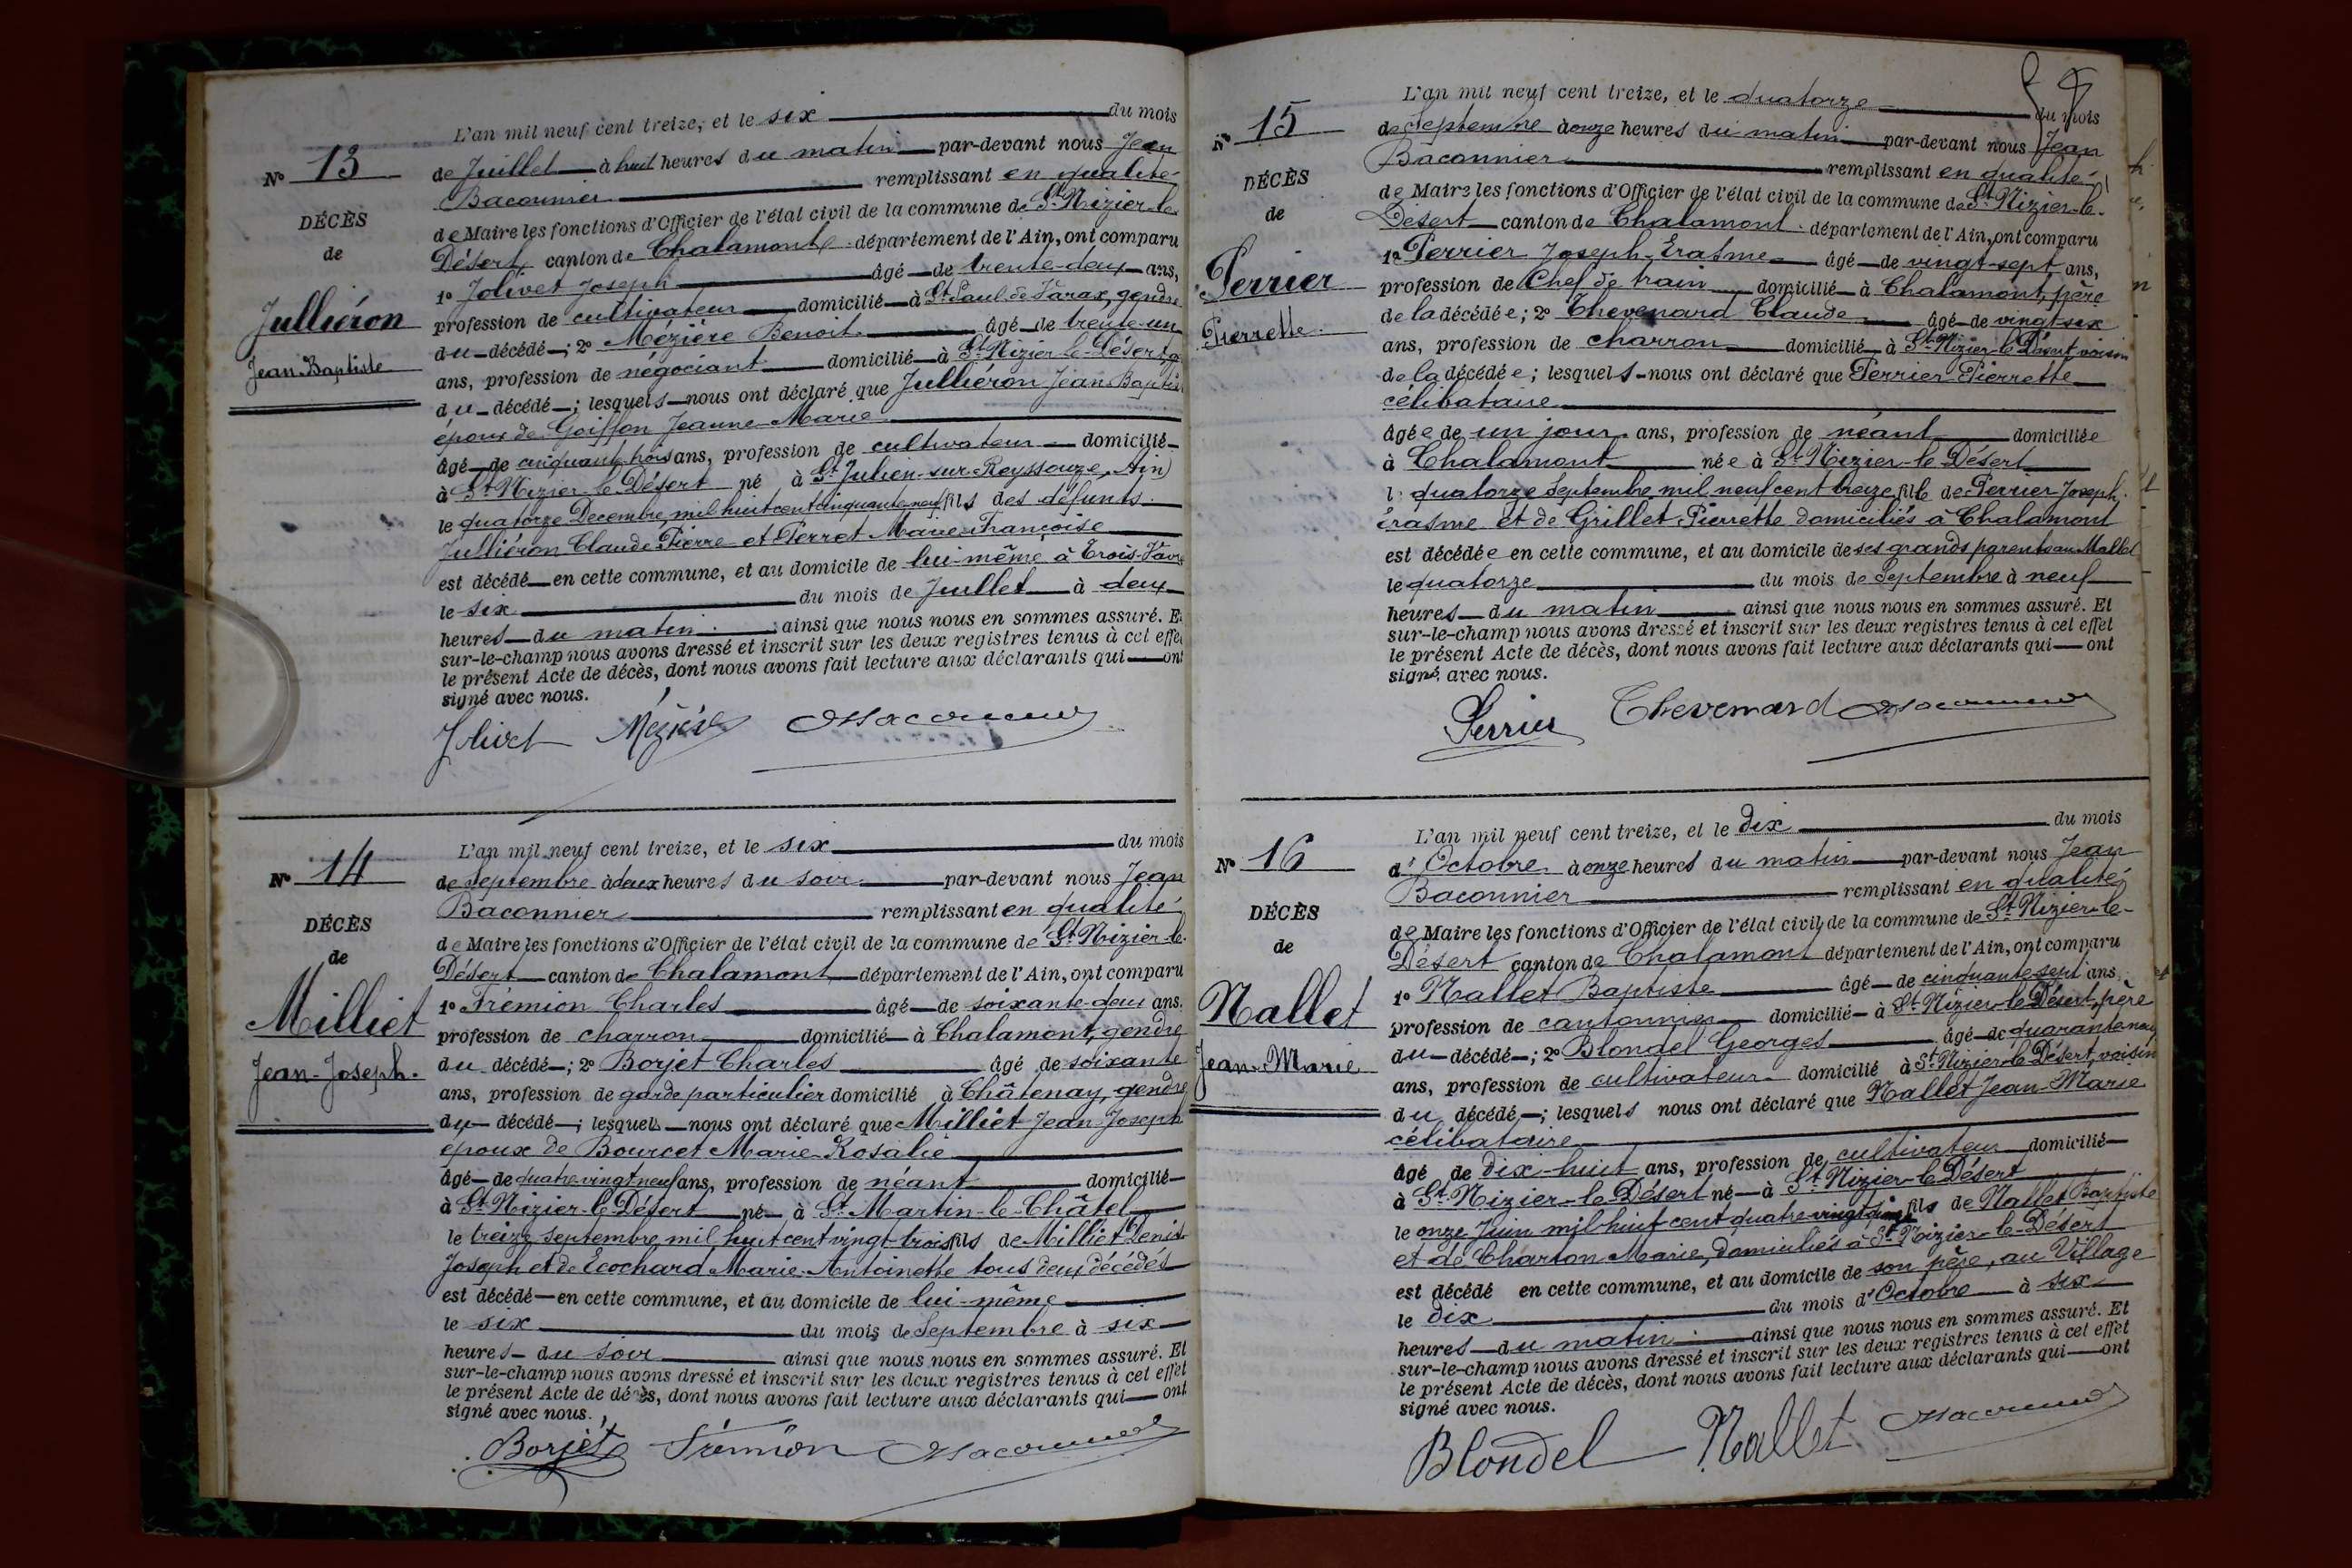 L'an mil neuf cent treize, et le six du mois
N° 13
de Juillet à huit heures du matin par-devant nous Jean
Baconnier remplissant en qualité
DÉCÈS
de Maire les fonctions d'Officier de l'état civil de la commune de St Nizier-le-
de
Désert canton de Chalamont département de l'Ain, ont comparu
1° Jolivet Joseph âgé de trente-deux ans,
Julliéron
profession de cultivateur domicilié à St Paul de Varax, gendre
du décédé ; 2° Mézière Benoit âgé de trente-un
Jean-Baptiste
ans, profession de négociant domicilié à St Nizier-le-Désert
du décédé ; lesquels nous ont déclaré que Julliéron Jean Baptiste
époux de Goiffon Jeanne-Marie
âgé de cinquante trois ans, profession de cultivateur domicilié
à St Nizier-le-Désert né à St Julien-sur-Reyssouze, Ain)
le quatorze Decembre, mil huit cent cinquante-neuf fils des défunts
Julliéron Claude Pierre et Perret Marie-Françoise
est décédé en cette commune, et au domicile de lui-même à Trois-
le six du mois de Juillet à deux
heures du matin ainsi que nous nous en sommes assuré. Et
sur-le-champ nous avons dressé et inscrit sur les deux registres tenus à cet effet
le présent Acte de décès, dont nous avons fait lecture aux déclarants qui ont
signé avec nous.
Jolivet Mézière Baconnier
L'an mil neuf cent treize, et le six du mois
N° 14
de Septembre à deux heures du soir par-devant nous Jean
Baconnier remplissant en qualité
DÉCÈS
de Maire les fonctions d'Officier de l'état civil de la commune de St Nizier-le-
de
Désert canton de Chalamont département de l'Ain, ont comparu
1° Frémion Charles âgé de soixante-deux ans.
Milliet
profession de charron domicilié à Chalamont, gendre
du décédé ; 2° Borjet Charles âgé de soixante
Jean-Joseph.
ans, profession de garde particulier domicilié à Châtenay, gendre
du décédé ; lesquels nous ont déclaré que Milliet Jean Joseph
époux de Bourcet Marie-Rosalie
âgé de quatre vingt neuf ans, profession de néant domicilié
à St Nizier-le-Désert né à St Martin-le-Châtel
le treize septembre, mil huit cent vingt-trois fils de Milliet Denis
Joseph et de Ecochard Marie-Antoinette tous deux décédés
est décédé en cette commune, et au domicile de lui-même
le six du mois de Septembre à six
heures du soir ainsi que nous nous en sommes assuré. Et
sur-le-champ nous avons dressé et inscrit sur les deux registres tenus à cet effet
le présent Acte de décès, dont nous avons fait lecture aux déclarants qui ont
signé avec nous.
Borjet Frémion Baconnier
L'an mil neuf cent treize, et le quatorze du mois
N° 15
de Septembre à onze heures du matin par-devant nous Jean
Baconnier remplissant en qualité
DÉCÈS
de Maire les fonctions d'Officier de l'état civil de la commune de St Nizier-le-
de
Désert canton de Chalamont département de l'Ain, ont comparu
1° Perrier Joseph-Erasme âgé de vingt-sept ans,
Perrier
profession de Chef de train domicilié à Chalamont, père
de la décédée ; 2° Thevenard Claude âgé de vingt-six
Pierrette.
ans, profession de charron domicilié à St Nizier-le-Désert, voisin
de la décédée ; lesquels nous ont déclaré que Perrier Pierrette
célibataire
âgée de un jour ans, profession de néant domiciliée
à Chalamont née à St Nizier-le-Désert
l quatorze Septembre, mil neuf cent treize, fille de Perrier Joseph
érasme et de Grillet Pierrette domiciliés à Chalamont
est décédée en cette commune, et au domicile de ses grands parents au Mallet
le quatorze du mois de Septembre à neuf
heures du matin ainsi que nous nous en sommes assuré. Et
sur-le-champ nous avons dressé et inscrit sur les deux registres tenus à cet effet
le présent Acte de décès, dont nous avons fait lecture aux déclarants qui ont
signé avec nous.
Perrier Thevenard Baconnier
L'an mil neuf cent treize, et le dix du mois
N° 16
d'Octobre à onze heures du matin par-devant nous Jean
Baconnier remplissant en qualité
DÉCÈS
de Maire les fonctions d'Officier de l'état civil de la commune de St Nizier-le-
de
Désert canton de Chalamont département de l'Ain, ont comparu
1° Nallet Baptiste âgé de cinquante-sept ans,
Nallet
profession de cantonnier domicilié à St Nizier-le-Désert, père
du décédé ; 2° Blondel Georges âgé de quarante neuf
Jean-Marie
ans, profession de cultivateur domicilié à St Nizier-le-Désert, voisin
du décédé ; lesquels nous ont déclaré que Nallet Jean-Marie
célibataire
âgé de dix-huit ans, profession de cultivateur domicilié
à St Nizier-le-Désert né à St Nizier-le-Désert
le onze Juin mil huit cent quatre-vingt fils de Nallet Baptiste
et de Charton Marie, domiciliés à St Nizier-le-Désert
est décédé en cette commune, et au domicile de son père, au Village
le dix du mois d'Octobre à six
heures du matin ainsi que nous nous en sommes assuré. Et
sur-le-champ nous avons dressé et inscrit sur les deux registres tenus à cet effet
le présent Acte de décès, dont nous avons fait lecture aux déclarants qui ont
signé avec nous.
Blondel Nallet Baconnier